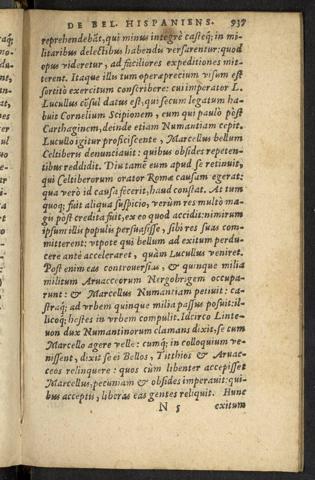 DE BEL. HISPANIENS. 937
reprehendebãt, qui minus integrè casteq; in mi-
litaribus delectibus habendis versarentur: quod
opus videretur, ad faciliores expeditiones mit-
terent. Itaque illis tum operaprecium visum est
sortitò exercitum conscribere: cui imperator L.
Lucullus cõsul datus est, qui secum legatum ha-
buit Cornelium Scipionem, eum qui paulò pòst
Carthaginem, deinde etiam Numantiam cepit.
Lucullo igitur proficiscente, Marcellus bellum
Celtiberis denunciauit: quibus obsides repeten-
tibus reddidit. Diu tamẽ eum apud se retinuit,
qui Celtiberorum orator Romæ causam egerat:
qua verò id causa fecerit, haud constat. At tum
quoq; fuit aliqua suspicio, verùm res multò ma-
gis pòst credita fuit, ex eo quod accidit: nimirum
ipsum illis populis persuasisse, sibi res suas com-
mitterent: vtpote qui bellum ad exitum perdu-
cere antè acceleraret, quàm Lucullus veniret.
Post enim eas controuersias, & quinque milia
militum Aruaccorum Nergobrigem occupa-
runt: & Marcellus Numantiam petiuit: ca-
straq; ad vrbem quinque milia passus posuit: il-
licoq; hostes in vrbem compulit. Id circo Linte-
uon dux Numantinorum clamans dixit, se cum
Marcello agere velle: cumq; in colloquium ve-
nissent, dixit se ei Bellos, Titthios & Aruac-
ceos relinquere: quos cùm libenter accepisset
Marcellus, pecuniam & obsides imperauit: qui-
bus acceptis, liberas eas gentes reliquit. Hunc
N 5 exitum